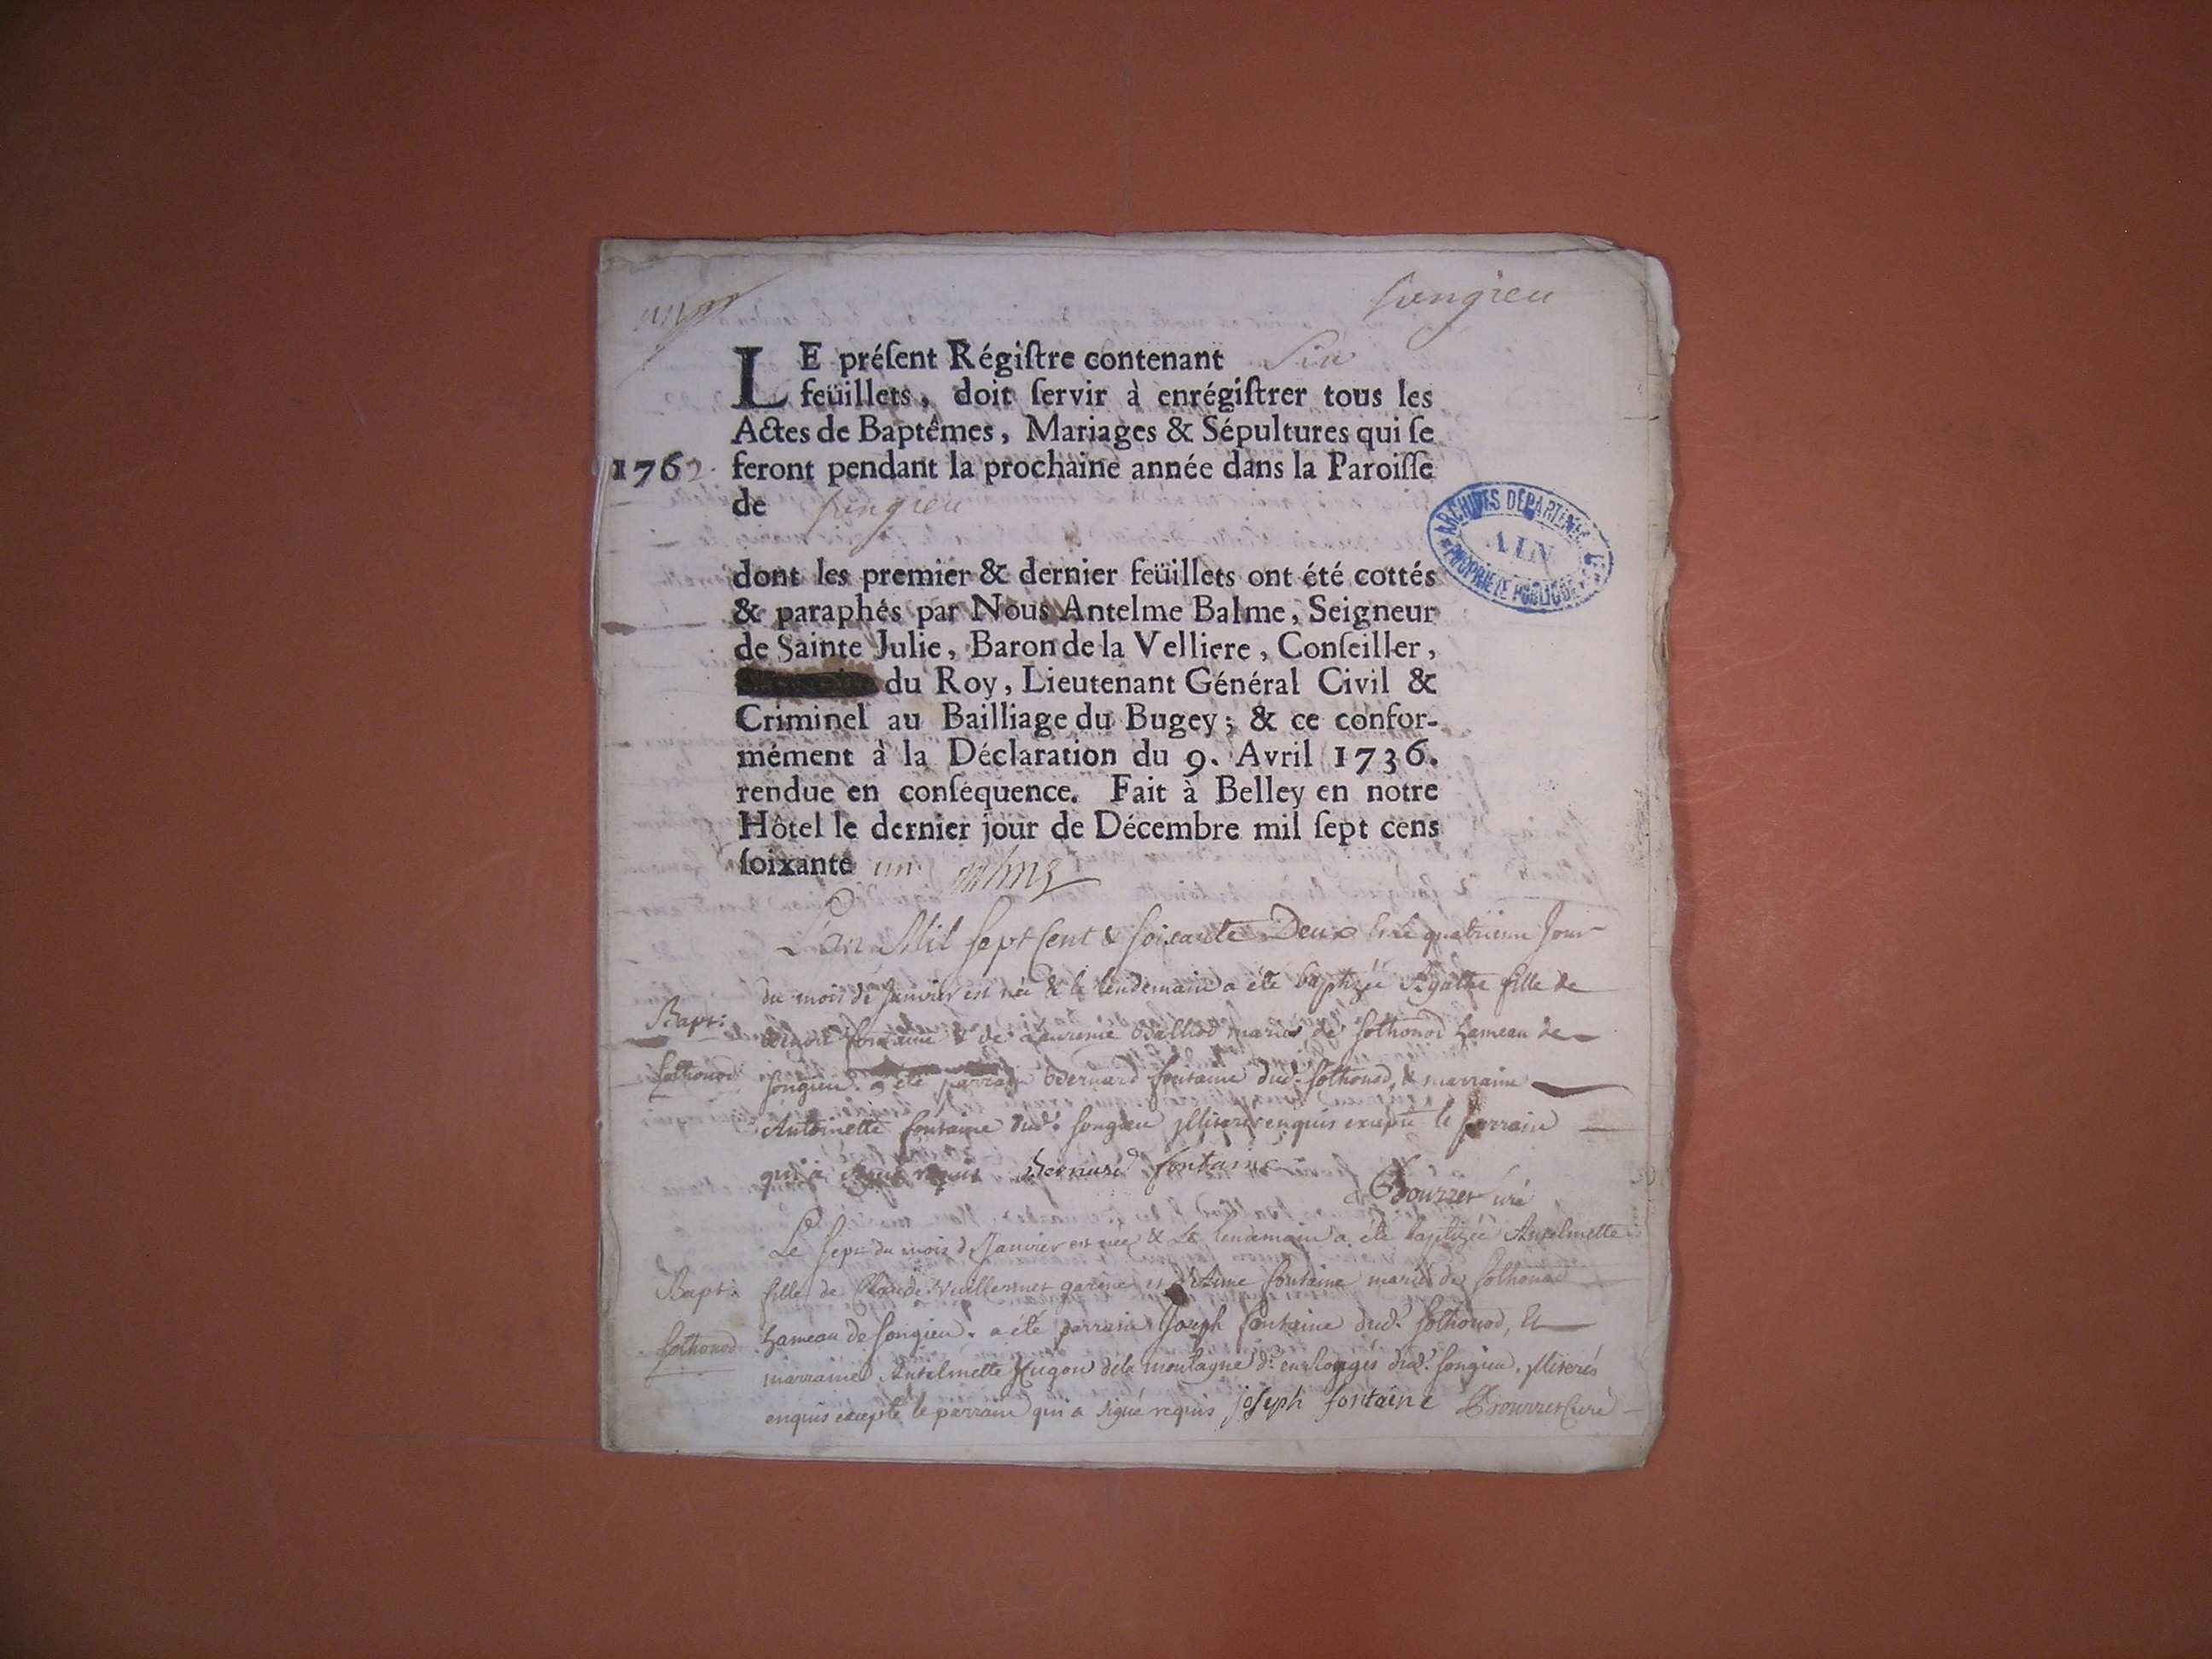 Songieu
LE préſent Régiſtre contenant Six
feüillets, doit ſervir à enrégiſtrer tous les
Actes de Baptêmes, Mariages & Sépultures qui ſe
1762. feront pendant la prochaine année dans la Paroiſſe
de Songieu
ARCHIVES DEPARTEMENTALES
AIN
PROPRIETE PUBLIQUE
dont les premier & dernier feüillets ont été cottés
& paraphés par Nous Antelme Balme, Seigneur
de Sainte Julie, Baron de la Velliere, Conſeiller,
du Roy, Lieutenant Général Civil &
Criminel au Bailliage du Bugey; & ce confor-
mément à la Déclaration du 9. Avril 1736.
rendue en conſéquence. Fait à Belley en notre
Hôtel le dernier jour de Décembre mil ſept cens
ſoixante un
L'an Mil Sept Cent & soixante Deux & le quatrieme Jour
du mois de Janvier est née & le lendemain a été baptizée Agathe fille de
Bapt: fontaine & de Laurence mariés de sothonod hameau de
sothonod songieu. a été parrain Bernard fontaine dud. sothonod, & marraine
Antoinette fontaine dud. songieu illiterés enquis excepté le parrain
qui a signé requis Bernard fontaine
Bourzet curé
Le sept du mois de Janvier est née & le lendemain a été baptizée Antelmette
Bapt: fille de Claude Vuillermet et d'Anne fontaine mariés de sothonod
sothonod hameau de songieu. a été parrain Joseph fontaine dud. sothonod, et
marraine Antelmette Hugon de la montagne dud. songieu. illiterés
enquis excepté le parrain qui a signé requis joseph fontaine Bourzet Curé